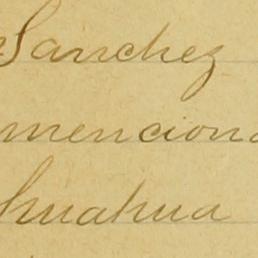 Sanchez
menciona
huahua